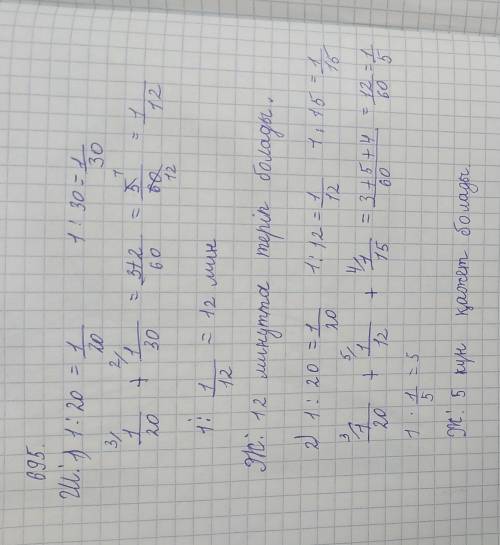 695.
Ш: 1) 1 : 20 = 1/20   1 : 30 = 1/30
3/ 1/20 + 2/ 1/30 = 3+2/60 = 5/60 = 1/12
1 : 1/12 = 12 мин
Ж: 12 минутта теріп болады.
2) 1 : 20 = 1/20   1 : 12 = 1/12   1 : 15 = 1/15
3/ 1/20 + 5/ 1/12 + 4/ 1/15 = 3+5+4/60 = 12/60 = 1/5
1 : 1/5 = 5
Ж: 5 күн қажет болады.